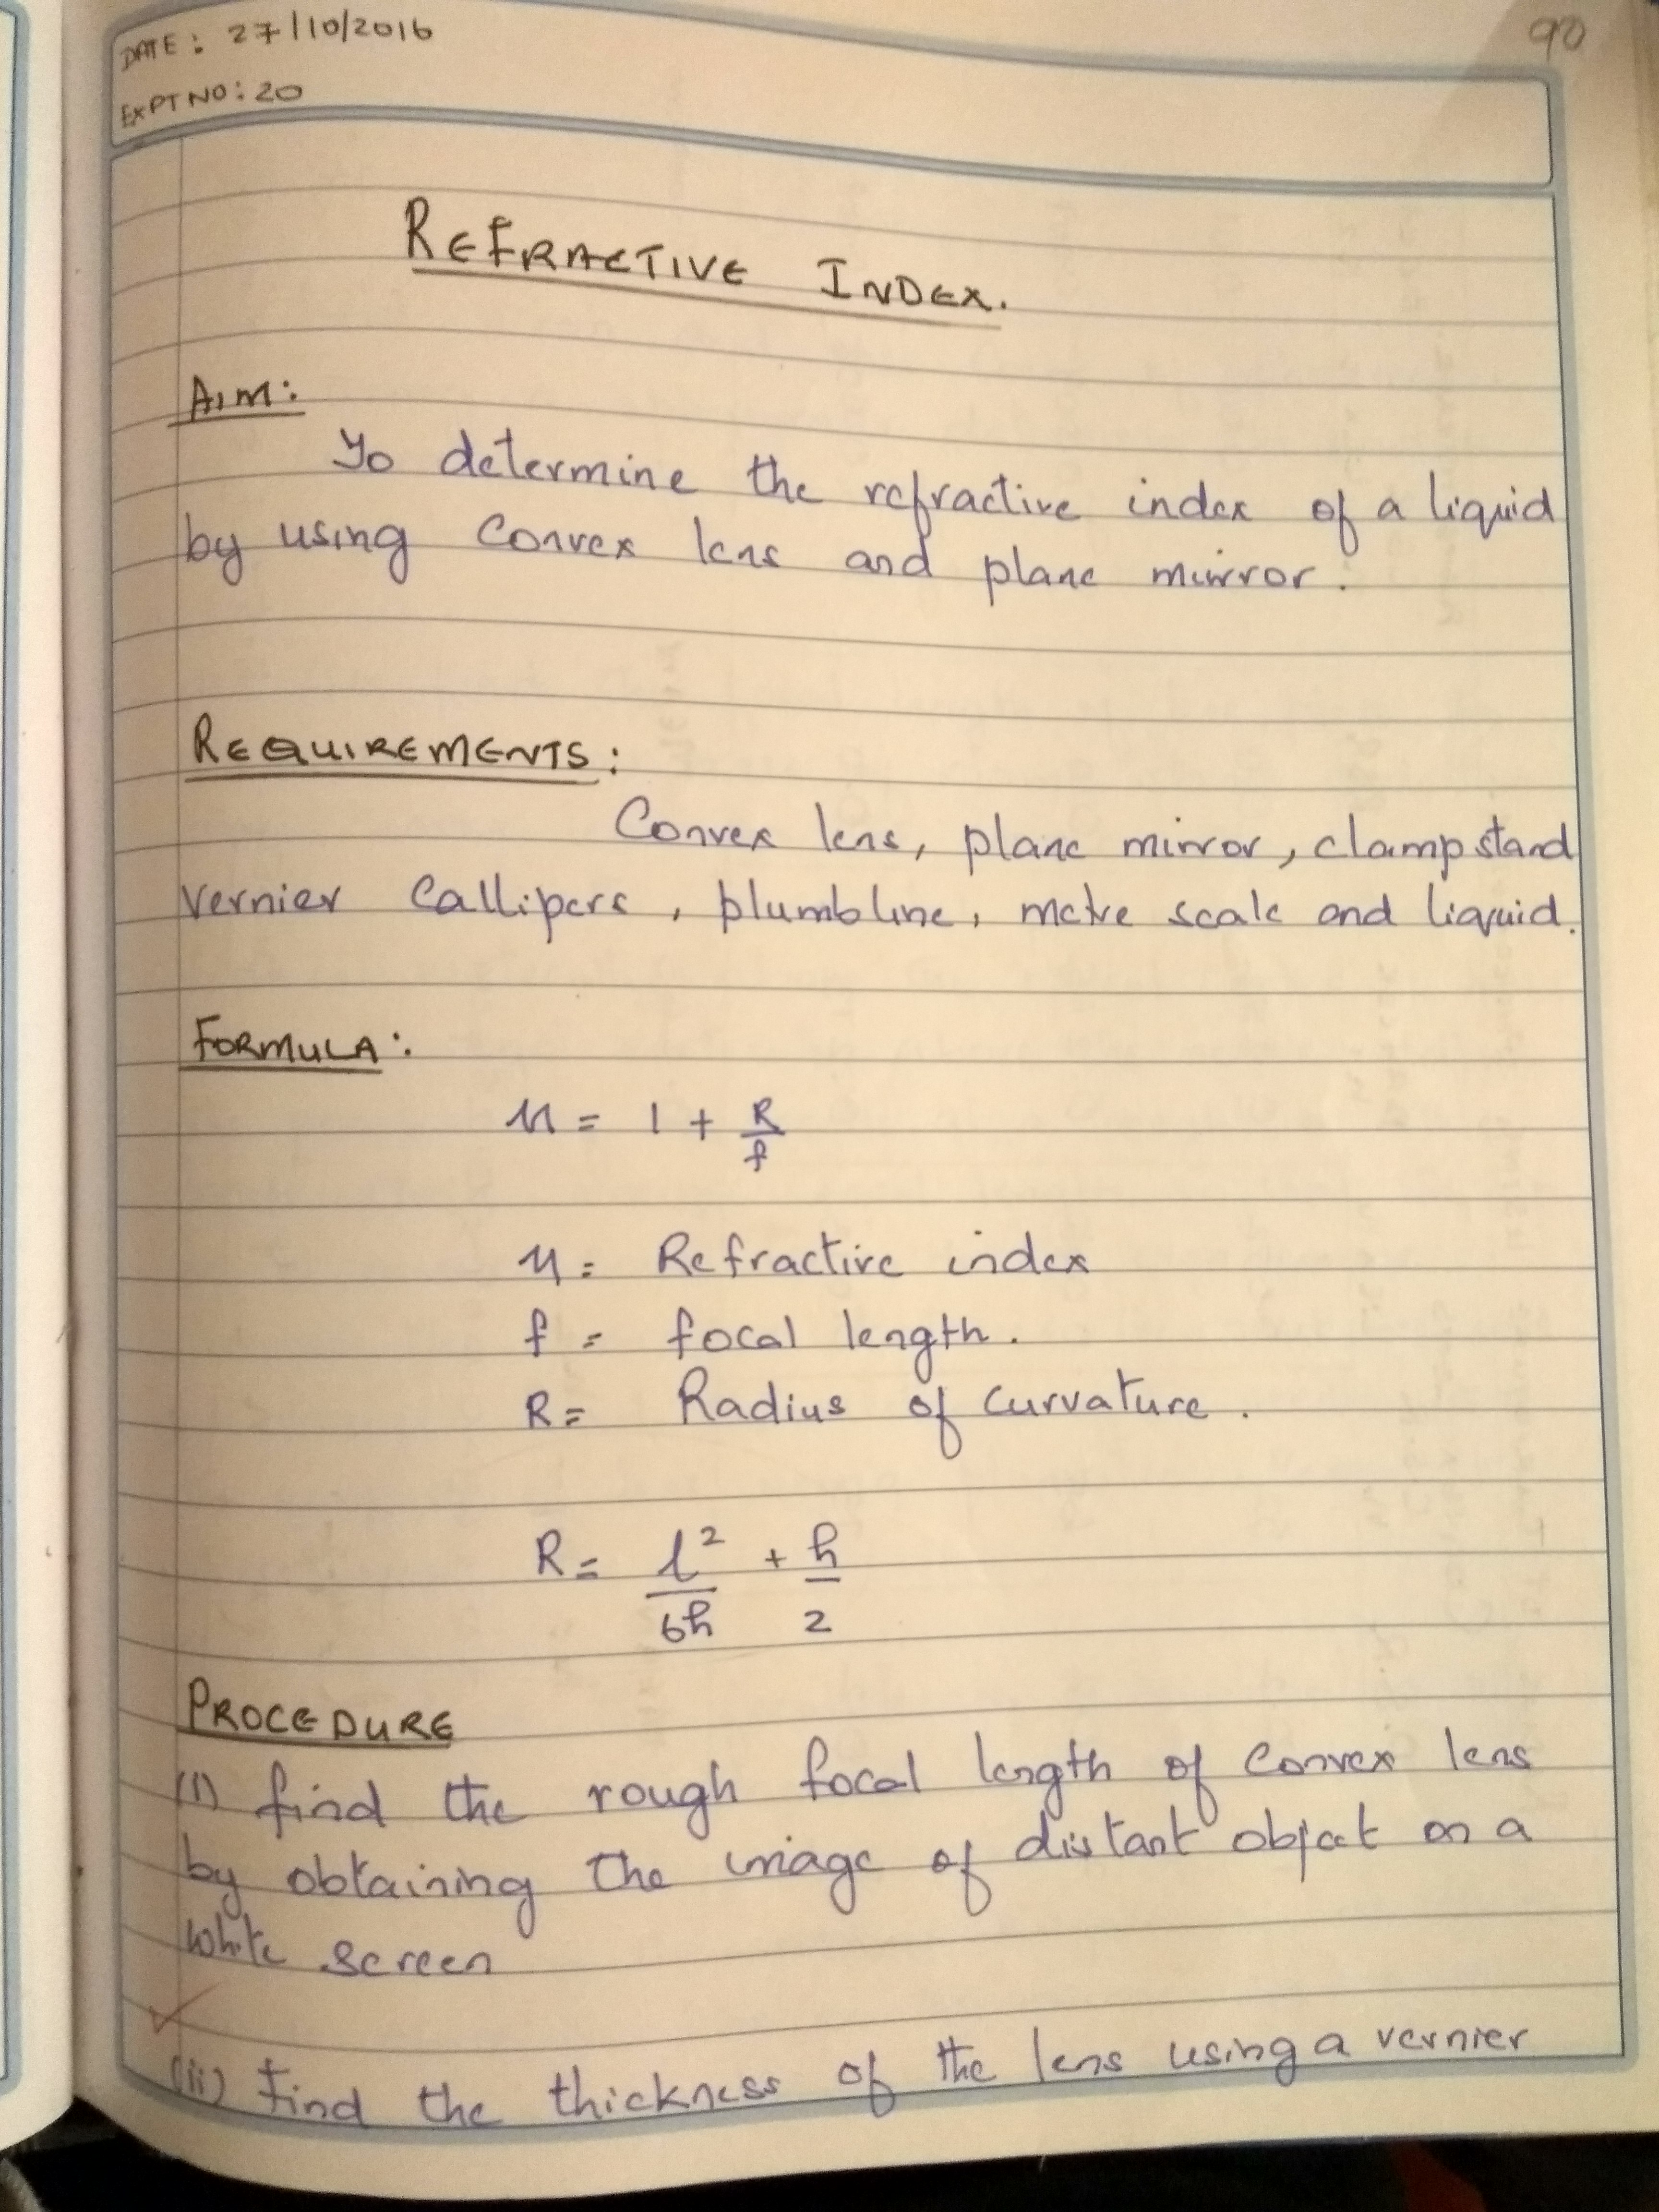 DATE: 27/10/2016
90
EXPT NO: 20
REFRACTIVE INDEX.
AIM:
To determine the refractive index of a liquid
by using Convex lens and plane mirror.
REQUIREMENTS:
Convex lens, plane mirror, clamp stand
vernier Callipers, plumbline, metre scale and liquid.
FORMULA:
μ = 1 + R/f
μ = Refractive index
f = focal length.
R = Radius of Curvature.
R = l²/6h + h/2
PROCEDURE
(i) find the rough focal length of Convex lens
by obtaining the image of distant object on a
white screen
(ii) Find the thickness of the lens using a vernier